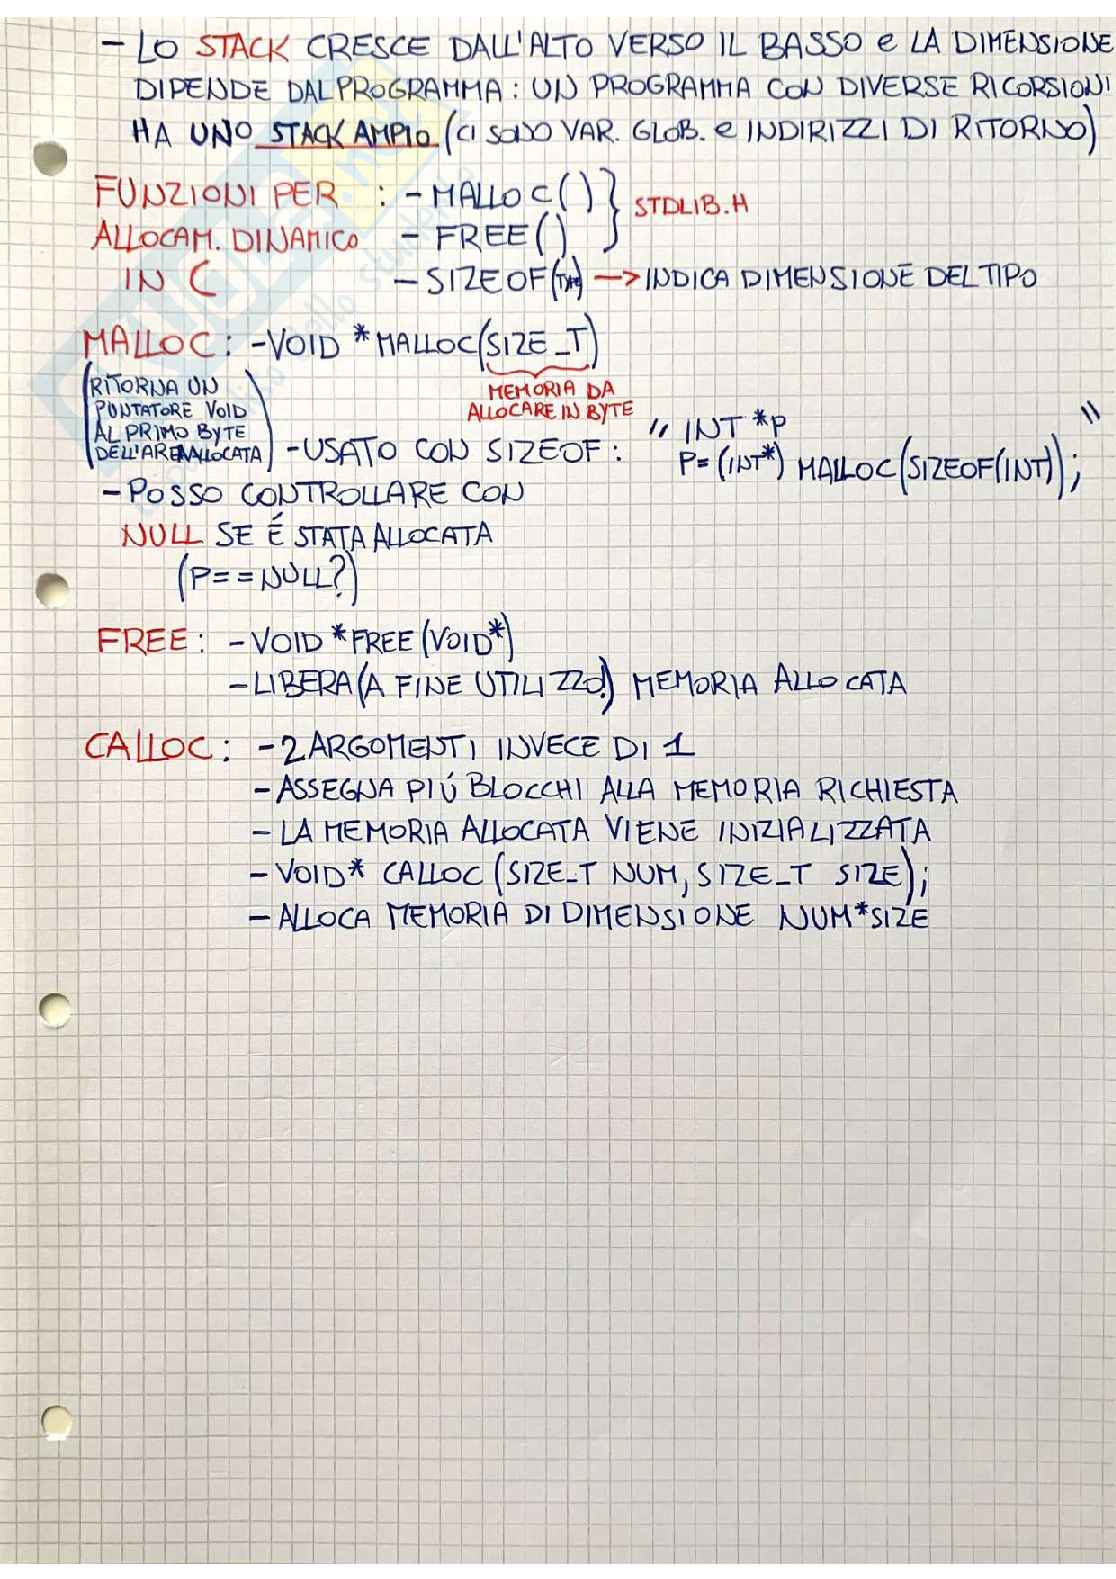 - LO STACK CRESCE DALL'ALTO VERSO IL BASSO e LA DIMENSIONE
DIPENDE DAL PROGRAMMA: UN PROGRAMMA CON DIVERSE RICORSIONI
HA UNO STACK AMPIO (CI SONO VAR. GLOB. e INDIRIZZI DI RITORNO)
FUNZIONI PER : - MALLOC() } STDLIB.H
ALLOCAM. DINAMICO - FREE()
IN C - SIZEOF(TYPE) -> INDICA DIMENSIONE DEL TIPO
MALLOC: - VOID *MALLOC(SIZE_T)
MEMORIA DA
ALLOCARE IN BYTE
(RITORNA UN
PUNTATORE VOID
AL PRIMO BYTE
DELL'AREA ALLOCATA)
- USATO CON SIZEOF: " INT *P
P= (INT*) MALLOC(SIZEOF(INT)); "
- POSSO CONTROLLARE CON
NULL SE É STATA ALLOCATA
(P==NULL?)
FREE: - VOID *FREE(VOID*)
- LIBERA (A FINE UTILIZZO!) MEMORIA ALLOCATA
CALLOC: - 2 ARGOMENTI INVECE DI 1
- ASSEGNA PIÚ BLOCCHI ALLA MEMORIA RICHIESTA
- LA MEMORIA ALLOCATA VIENE INIZIALIZZATA
- VOID* CALLOC (SIZE_T NUM, SIZE_T SIZE);
- ALLOCA MEMORIA DI DIMENSIONE NUM*SIZE